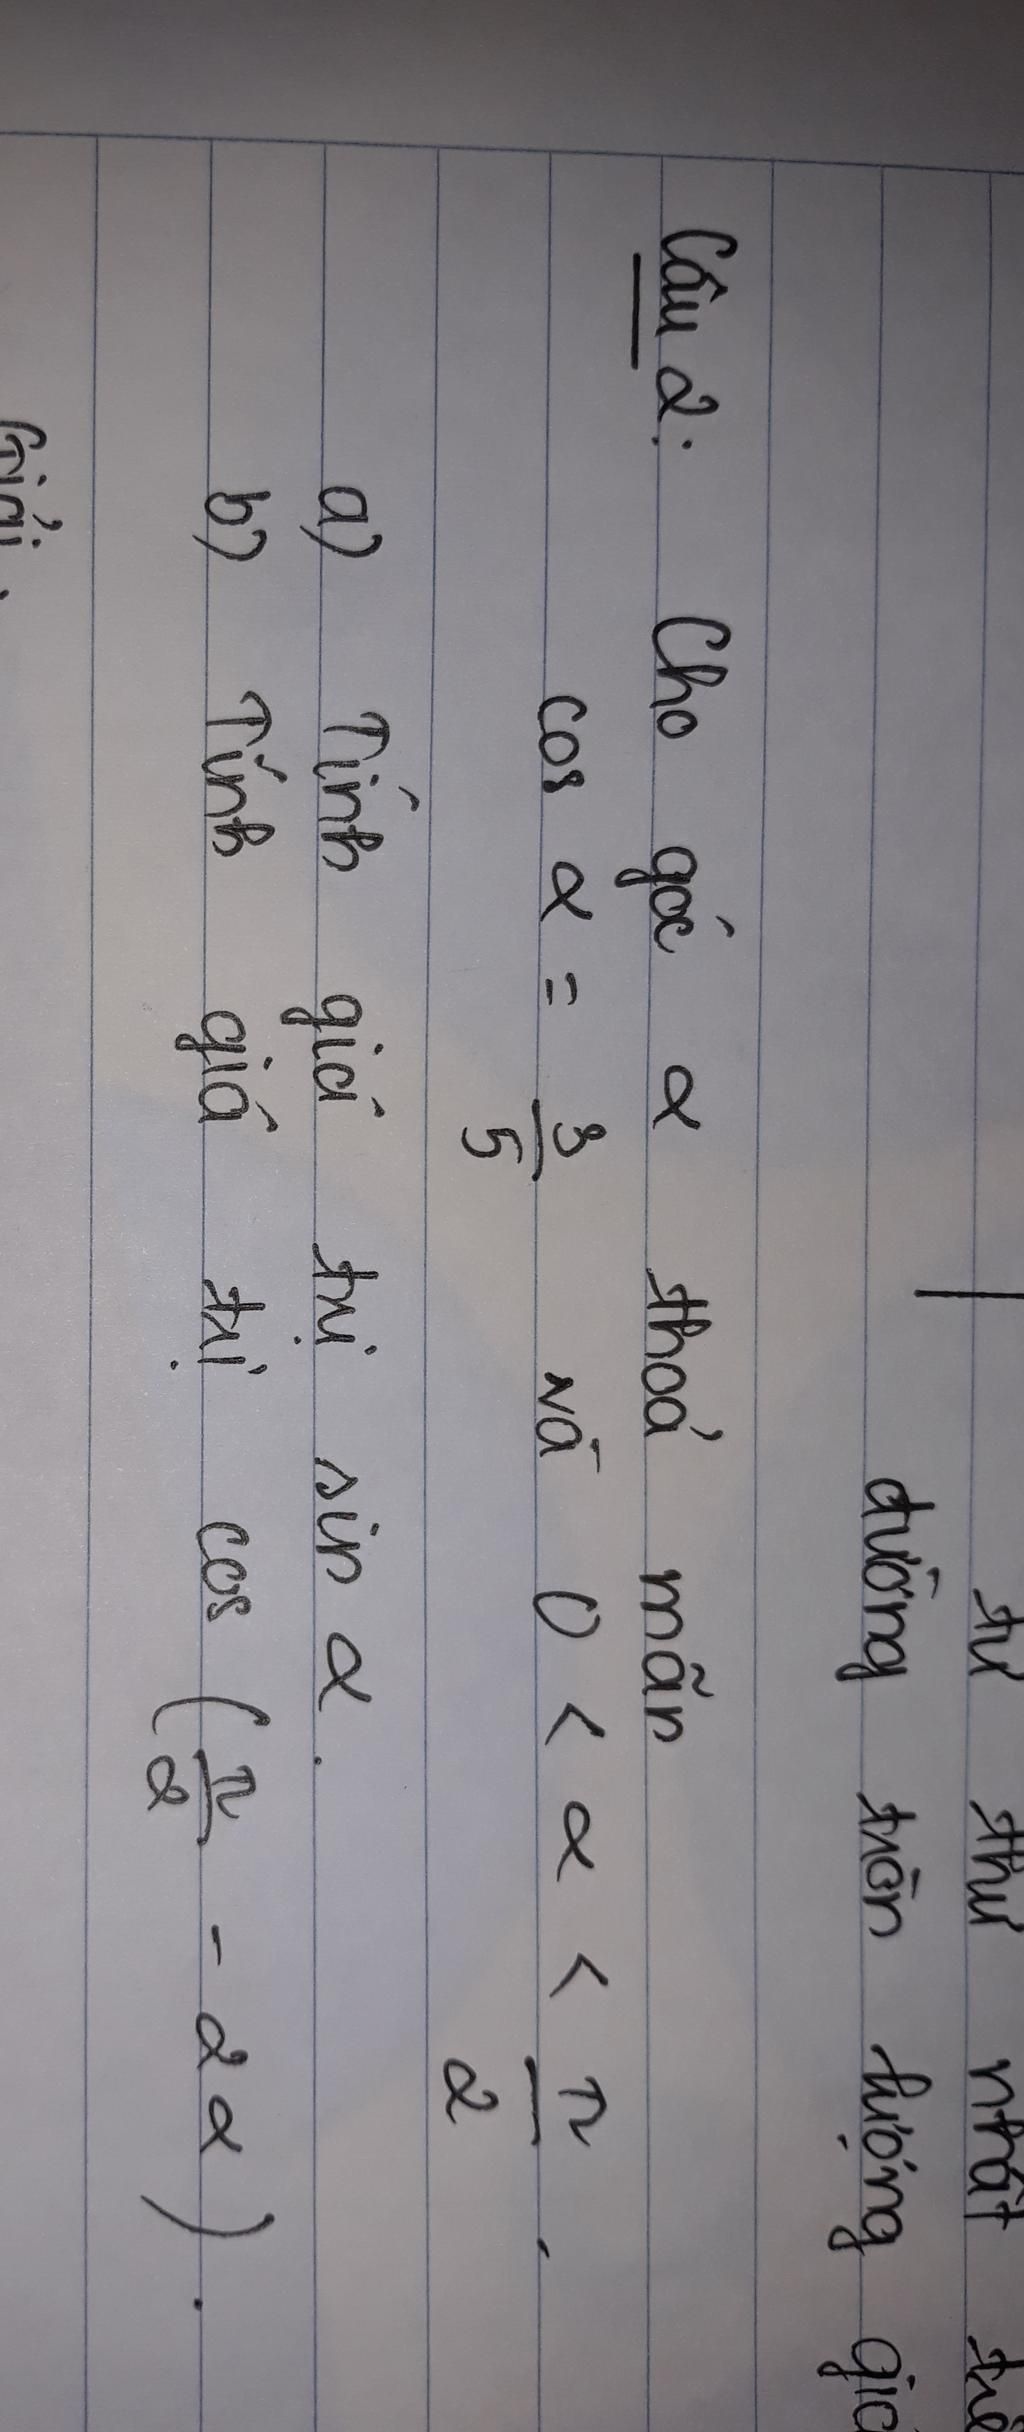 tư thứ nhất
đường tròn lượng giá
Câu 2: Cho góc α thoả mãn
cos α = 3/5 và 0 < α < π/2.
a) Tính giá trị sin α.
b) Tính giá trị cos (π/2 - 2α).
Giải: